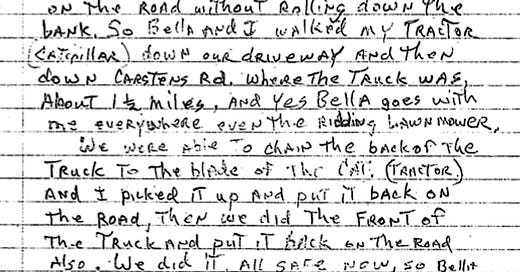 on the Road without Rolling down the
bank. So Bella and I walked my Tractor
(Catepillar) down our driveway and then
down Carstens Rd. where the Truck was,
About 1½ miles, and yes Bella goes with
me everywhere even the Ridding Lawnmower.
We were able to chain the back of the
Truck to the blade of The Cat. (Tractor)
And I picked it up and put it back on
the road, Then we did the Front of
the Truck and put it back on the Road
Also. We did it all safe now, so Bella